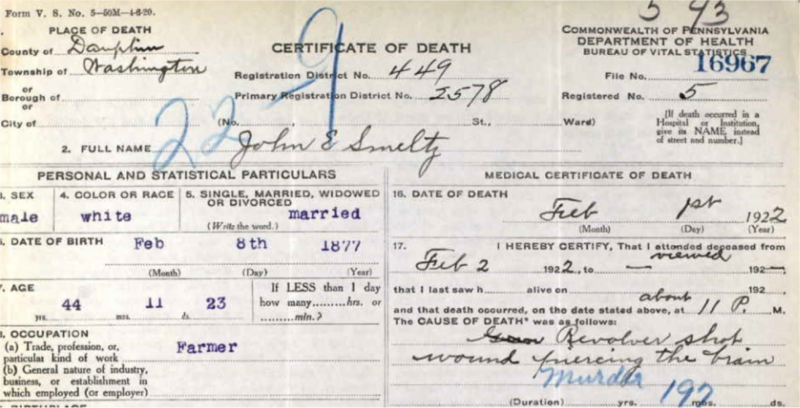 Form V. S. No. 5—50M—4-6-20.
5 93
PLACE OF DEATH
County of Dauphin
Township of Washington
or
Borough of
or
City of
CERTIFICATE OF DEATH
Registration District No. 449
Primary Registration District No. 2578
(No. St., Ward)
COMMONWEALTH OF PENNSYLVANIA
DEPARTMENT OF HEALTH
BUREAU OF VITAL STATISTICS
16967
File No.
Registered No. 5
[If death occurred in a
Hospital or Institution,
give its NAME instead
of street and number.]
22-9
2. FULL NAME John E Smeltz
PERSONAL AND STATISTICAL PARTICULARS
3. SEX
male
4. COLOR OR RACE
white
5. SINGLE, MARRIED, WIDOWED
OR DIVORCED
(Write the word.) married
6. DATE OF BIRTH Feb 8th 1877
(Month) (Day) (Year)
7. AGE
44 11 23
yrs. mos. ds.
If LESS than 1 day
how many.........hrs. or
.........min.?
8. OCCUPATION
(a) Trade, profession, or,
particular kind of work Farmer
(b) General nature of industry,
business, or establishment in
which employed (or employer)
BIRTHPLACE
MEDICAL CERTIFICATE OF DEATH
16. DATE OF DEATH
Feb 1st 1922
(Month) (Day) (Year)
17. I HEREBY CERTIFY, That I attended deceased from
viewed
Feb 2 1922, to — 192—,
that I last saw h alive on 192
about
and that death occurred, on the date stated above, at 11 P. M.
The CAUSE OF DEATH* was as follows:
Revolver shot
wound piercing the brain
Murder 197
(Duration) yrs. mos. ds.